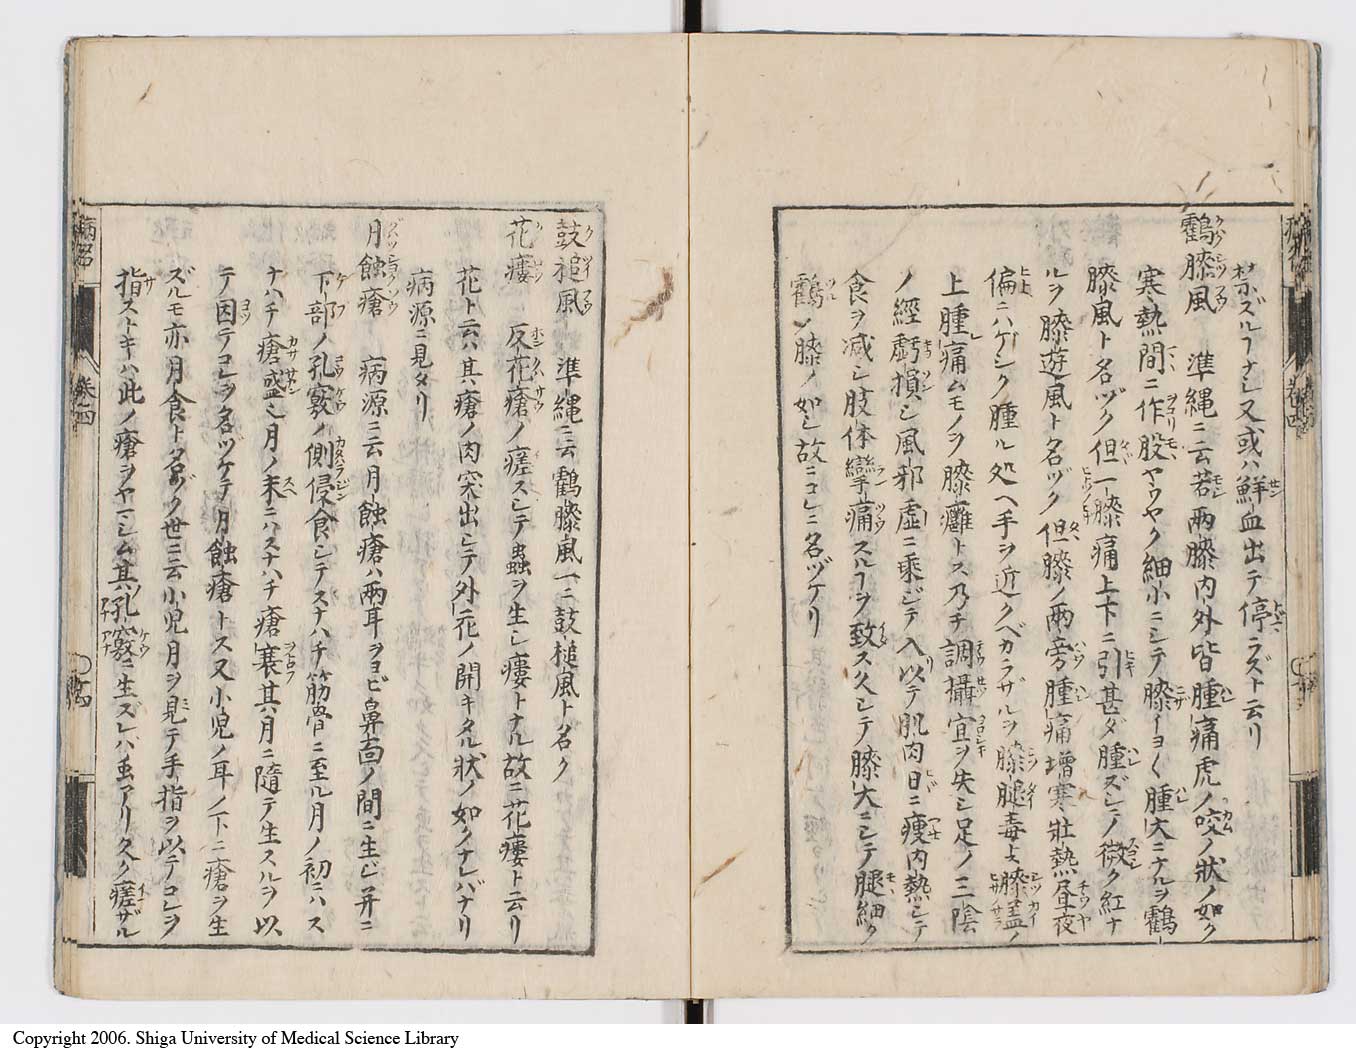 禁ズルヿナシ又或ハ鮮血出テ停ラズト云リ
鶴膝風 準縄ニ云若両膝内外皆腫痛虎ノ咬ノ状ノ如ク
寒熱間ニ作股ヤウヤク細小ニシテ膝イヨ〱腫大ニナルヲ鶴
膝風ト名ヅク但一膝痛上下ニ引甚ダ腫ズシテ微ク紅ナ
ルヲ膝遊風ト名ヅク但膝ノ両旁腫痛増寒壮熱昼夜
偏ニハゲシク腫ル処ヘ手ヲ近クベカラザルヲ膝腿毒ト膝盖ノ
上腫痛ムモノヲ膝癰トス乃チ調攝宜ヲ失シ足ノ三陰
ノ經虧損シ風邪虚ニ乘ジテ入以テ肌肉日ニ痩内熱シテ
食ヲ减シ肢体攣痛スルヿヲ致ス久シテ膝大ニシテ腿細ク
鶴ノ膝ノ如シ故ニコレニ名ヅケリ
鼓槌風 準縄ニ云鶴膝風一ニ鼓槌風ト名ク
花瘻 反花瘡ノ瘥ズシテ蟲ヲ生シ瘻トナル故ニ花瘻ト云リ
花ト云ハ其瘡ノ肉突出シテ外ニ花ノ開キタル状ノ如ナレバナリ
病源ニ見タリ
月蝕瘡 病源ニ云月蝕瘡ハ両耳ヲヨビ鼻面ノ間ニ生ジ并ニ
下部ノ孔竅ノ側侵食シテスナハチ筋骨ニ至ル月ノ初ニハス
ナハチ瘡盛ニ月ノ末ニハスナハチ瘡衰其月ニ隨テ生スルヲ以
テ因テコレヲ名ヅケテ月蝕瘡トス又小児ノ耳ノ下ニ瘡ヲ生
ズルモ亦月食ト名ヅク世ニ云小児月ヲ見テ手指ヲ以テコレヲ
指ストキハ此ノ瘡ヲヤマシム其孔竅ニ生ズレバ虫アリ久ク瘥ザル
病名 巻四
Copyright 2006. Shiga University of Medical Science Library